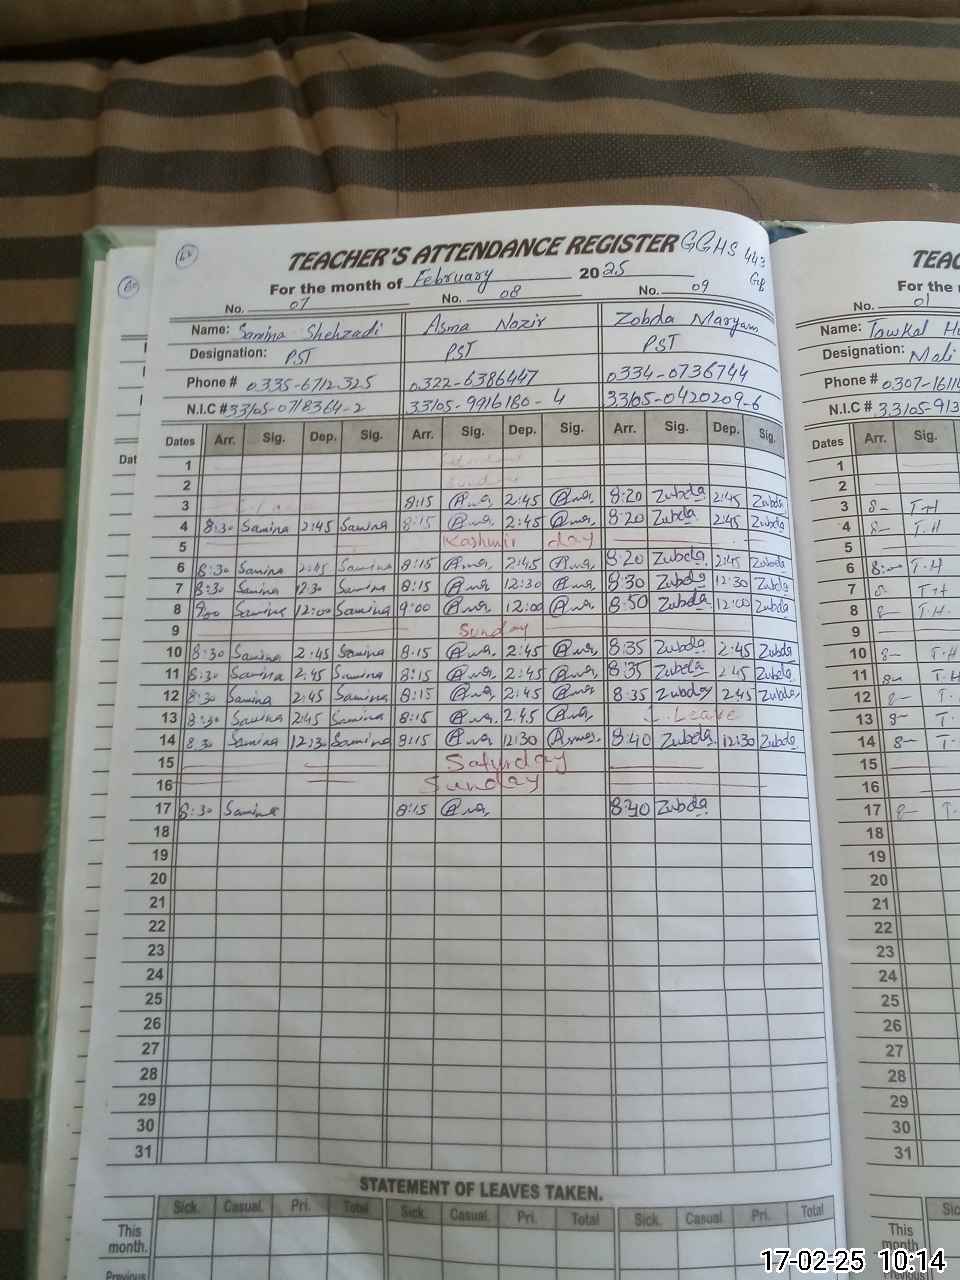 TEACHER'S ATTENDANCE REGISTER GGHS 443 GB
For the month of February 2025
No. 07 No. 08 No. 09
Name: Samina Shehzadi Asma Nazir Zobda Maryam
Designation: PST PST PST
Phone # 0335-6712325 0322-6386447 0334-0736744
N.I.C # 33105-0718364-2 33105-9916180-4 33105-0420209-6
Dates Arr. Sig. Dep. Sig. Arr. Sig. Dep. Sig. Arr. Sig. Dep. Sig.
1
2 Sunday
3 8:15 Asma 2:45 Asma 8:20 Zubda 2:45 Zubda
4 8:30 Samina 2:45 Samina 8:15 Asma 2:45 Asma 8:20 Zubda 2:45 Zubda
5 Kashmir day
6 8:30 Samina 2:45 Samina 8:15 Asma 2:45 Asma 8:20 Zubda 2:45 Zubda
7 8:30 Samina 12:30 Samina 8:15 Asma 12:30 Asma 8:30 Zubda 12:30 Zubda
8 9:00 Samina 12:00 Samina 9:00 Asma 12:00 Asma 8:50 Zubda 12:00 Zubda
9 Sunday
10 8:30 Samina 2:45 Samina 8:15 Asma 2:45 Asma 8:35 Zubda 2:45 Zubda
11 8:30 Samina 2:45 Samina 8:15 Asma 2:45 Asma 8:35 Zubda 2:45 Zubda
12 8:30 Samina 2:45 Samina 8:15 Asma 2:45 Asma 8:35 Zubda 2:45 Zubda
13 8:30 Samina 2:45 Samina 8:15 Asma 2:45 Asma Leave
14 8:30 Samina 12:30 Samina 8:15 Asma 12:30 Asma 8:40 Zubda 12:30 Zubda
15 Saturday
16 Sunday
17 8:30 Samina 8:15 Asma 8:40 Zubda
18
19
20
21
22
23
24
25
26
27
28
29
30
31
STATEMENT OF LEAVES TAKEN.
Sick. Casual. Pri. Total Sick. Casual. Pri. Total Sick. Casual. Pri. Total
This month.
Previous
TEAC
For the
No. 01
Name: Tawkal
Designation: Mali
Phone # 0307-1611
N.I.C # 33105-913
Dates Arr. Sig.
1
2
3 8- T-H
4 8- T.H
5
6 8:- T.H
7 8- T.H
8 8- T.H.
9
10 8- T.H
11 8- T.H
12 8- T.
13 8- T.
14 8- T.
15
16
17 8- T.
18
19
20
21
22
23
24
25
26
27
28
29
30
31
This month
Previous
17-02-25 10:14